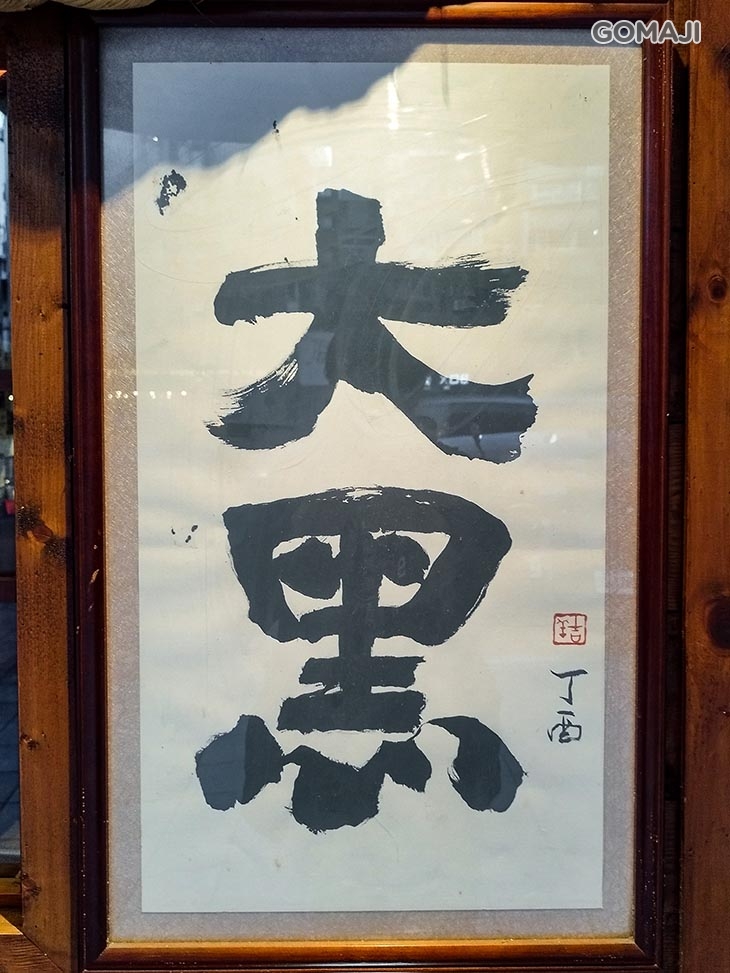 GOMAJI
大黑
丁酉